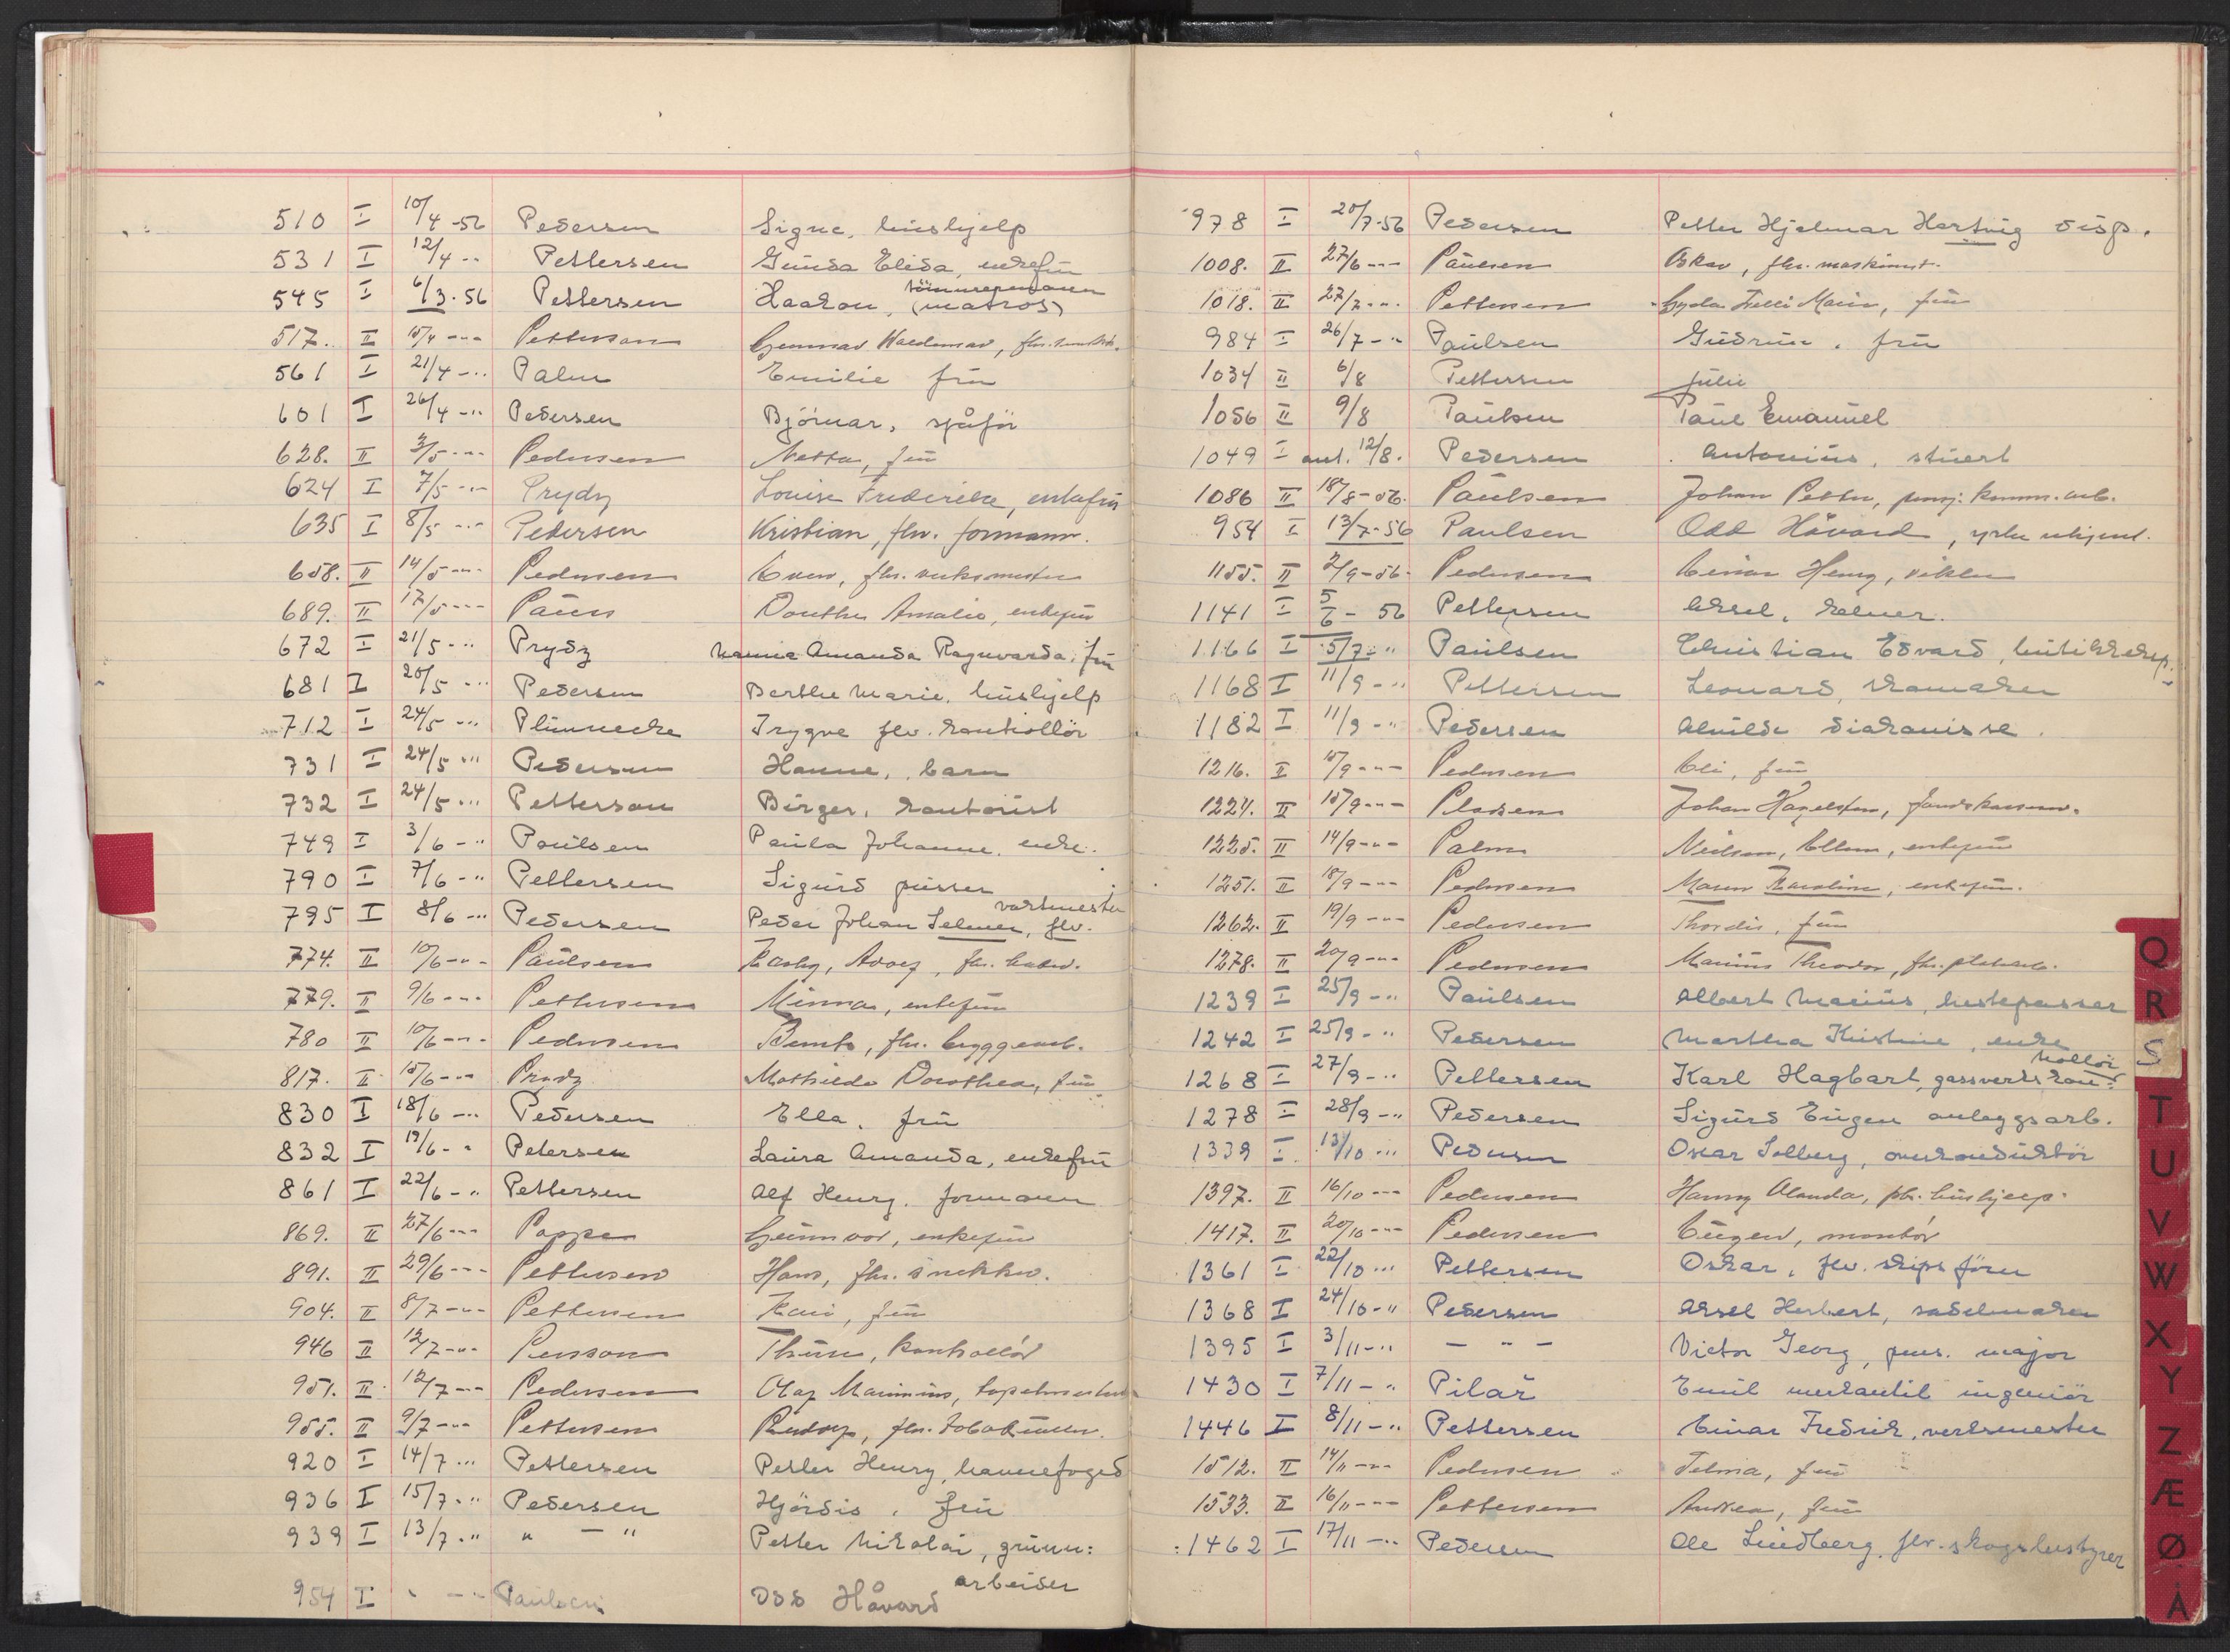 510 I 10/4 -56 Pedersen Signe, hushjelp
531 I 12/4 -" Pettersen Gunda Elida, enkefru
545 I 6/3.56 Pettersen Haakon, tömmermann (matros)
517. II 15/4 -"- Petterson Gunnar Waldemar, fhv.
561 I 21/4 -" Palm Emilie fru
601 I 26/4 -" Pedersen Björnar, sjåför
628. II 3/5 -"- Pedersen Netta, fru
624 I 7/5 -"- Prydz Louise Frederikke, enkefru
635 I 8/5 -"- Pedersen Kristian, fhv. formann.
658. II 14/5 -"- Pedersen Even, fhv. verksmester
689. II 17/5 -"- Paus Dorthea Amalie, enkefru
672 I 21/5 -" Prydz Nanna Amanda Ragnvarda, fru
681 I 20/5 -" Pedersen Berthe Marie, hushjelp
712 I 24/5 -" Plünnecke Trygve fhv. kontrollör
731 I 24/5 -" Pedersen Hanne, barn
732 I 24/5 -" Petterson Birger, kontorist
749 I 3/6 -" Paulsen Paula Johanne, enke.
790 I 7/6 -" Pettersen Sigurd pusser
795 I 8/6 -" Pedersen Peder Johan Selmer, fhv. vaktmester
774. II 10/6 -"- Paulsen Harby, Adolf, fhv.
779. II 9/6 -"- Pettersen Minna, enkefru
780 II 10/6 -"- Pedersen Bernt, fhv. bryggearb.
817. II 15/6 -"- Prydz Mathilde Dorothea, fru
830 I 18/6 -" Pedersen Ella, fru
832 I 19/6 -" Petersen Laura Amanda, enkefru
861 I 22/6 -" Pettersen Alf Henry, formann
869. II 27/6 -"- Poppe Gunnvor, enkefru
891. II 29/6 -"- Pettersen Hans, fhv. snekker.
904. II 8/7 -"- Pettersen Kari, fru
946 II 12/7 -"- Persson Thure, kontrollör
951. II 12/7 -"- Pedersen Olaf Marinius,
955. II 9/7 -"- Pettersen Rudolf, fhv.
920 I 14/7 -" Pettersen Petter Henry, havnefoged
936 I 15/7 -" Pedersen Hjördis, fru
939 I 13/7 -" " - " Petter Nikolai, grunn:
arbeider
954 I " - Paulsen Odd Håvard
978 I 20/7-56 Pedersen Petter Hjalmar Hartvig disp.
1008. II 27/6 -"- Paulsen Oskar, fhv. maskinist.
1018. II 27/7 -"- Pettersen Gyda Marie, fru
984 I 26/7 -" Paulsen Gudrun, fru
1034 II 6/8 Pettersen Julie
1056 II 9/8 Paulsen Paul Emanuel
1049 I ant. 12/8. Pedersen Antonius, stuert
1086 II 18/8-56. Paulsen Johan Petter, pensj. komm. arb.
954 I 13/7-56 Paulsen Odd Håvard, yrke ukjent.
1155. II 2/9-56. Pedersen Einar Henry,
1141 I 5/6 - 56 Pettersen Aksel, kelner.
1166 I 5/7 -" Paulsen Christian Edvard, butikkeksp.
1168 I 11/9 -" Pettersen Leonard, skomaker
1182 I 11/9 -" Pedersen Alvilde diakonisse.
1216. II 15/9 -"- Pedersen Eli, fru
1224. II 15/9 -"- Pladsen Johan
1225. II 14/9 -"- Palm Ellen, enkefru
1251. II 18/9 -"- Pedersen Maren Karoline, enkefru.
1262. II 19/9 -"- Pedersen Thordis, fru
1278. II 20/9 -"- Pedersen Marius Theodor, fhv.
1239 I 25/9 -" Paulsen Albert Marius, hestepasser
1242 I 25/9 -" Pedersen Martha Kristine, enke
1268 I 27/9 -" Pettersen Karl Hagbart, gassverkskon: trollör
1278 I 28/9 -" Pedersen Sigurd Eugen anleggsarb.
1339 I 13/10 -" Pedersen Oscar Solberg, overkonduktör
1397. II 16/10 -"- Pedersen Hanny Alanda, hushjelp.
1417. II 20/10 -"- Pedersen Eugen, montör
1361 I 22/10 -" Pettersen Oskar, fhv. skipsförer
1368 I 24/10 -" Pedersen Aksel Herbert, sadelmaker
1395 I 3/11 -" - " - Victor Georg, pens. major
1430 I 7/11 -" Pilař Emil merkantil ingeniör
1446 I 8/11 -" Pettersen Einar Fredrik, verksmester
1512. II 14/11 -"- Pedersen Telma, fru
1533. II 16/11 -"- Pettersen Andrea, fru
1462 I 17/11 -" Pedersen Ole Lindberg, fhv. skogsbestyrer
Q
R
S
T
U
V
W
X
Y
Z
Æ
Ø
Å